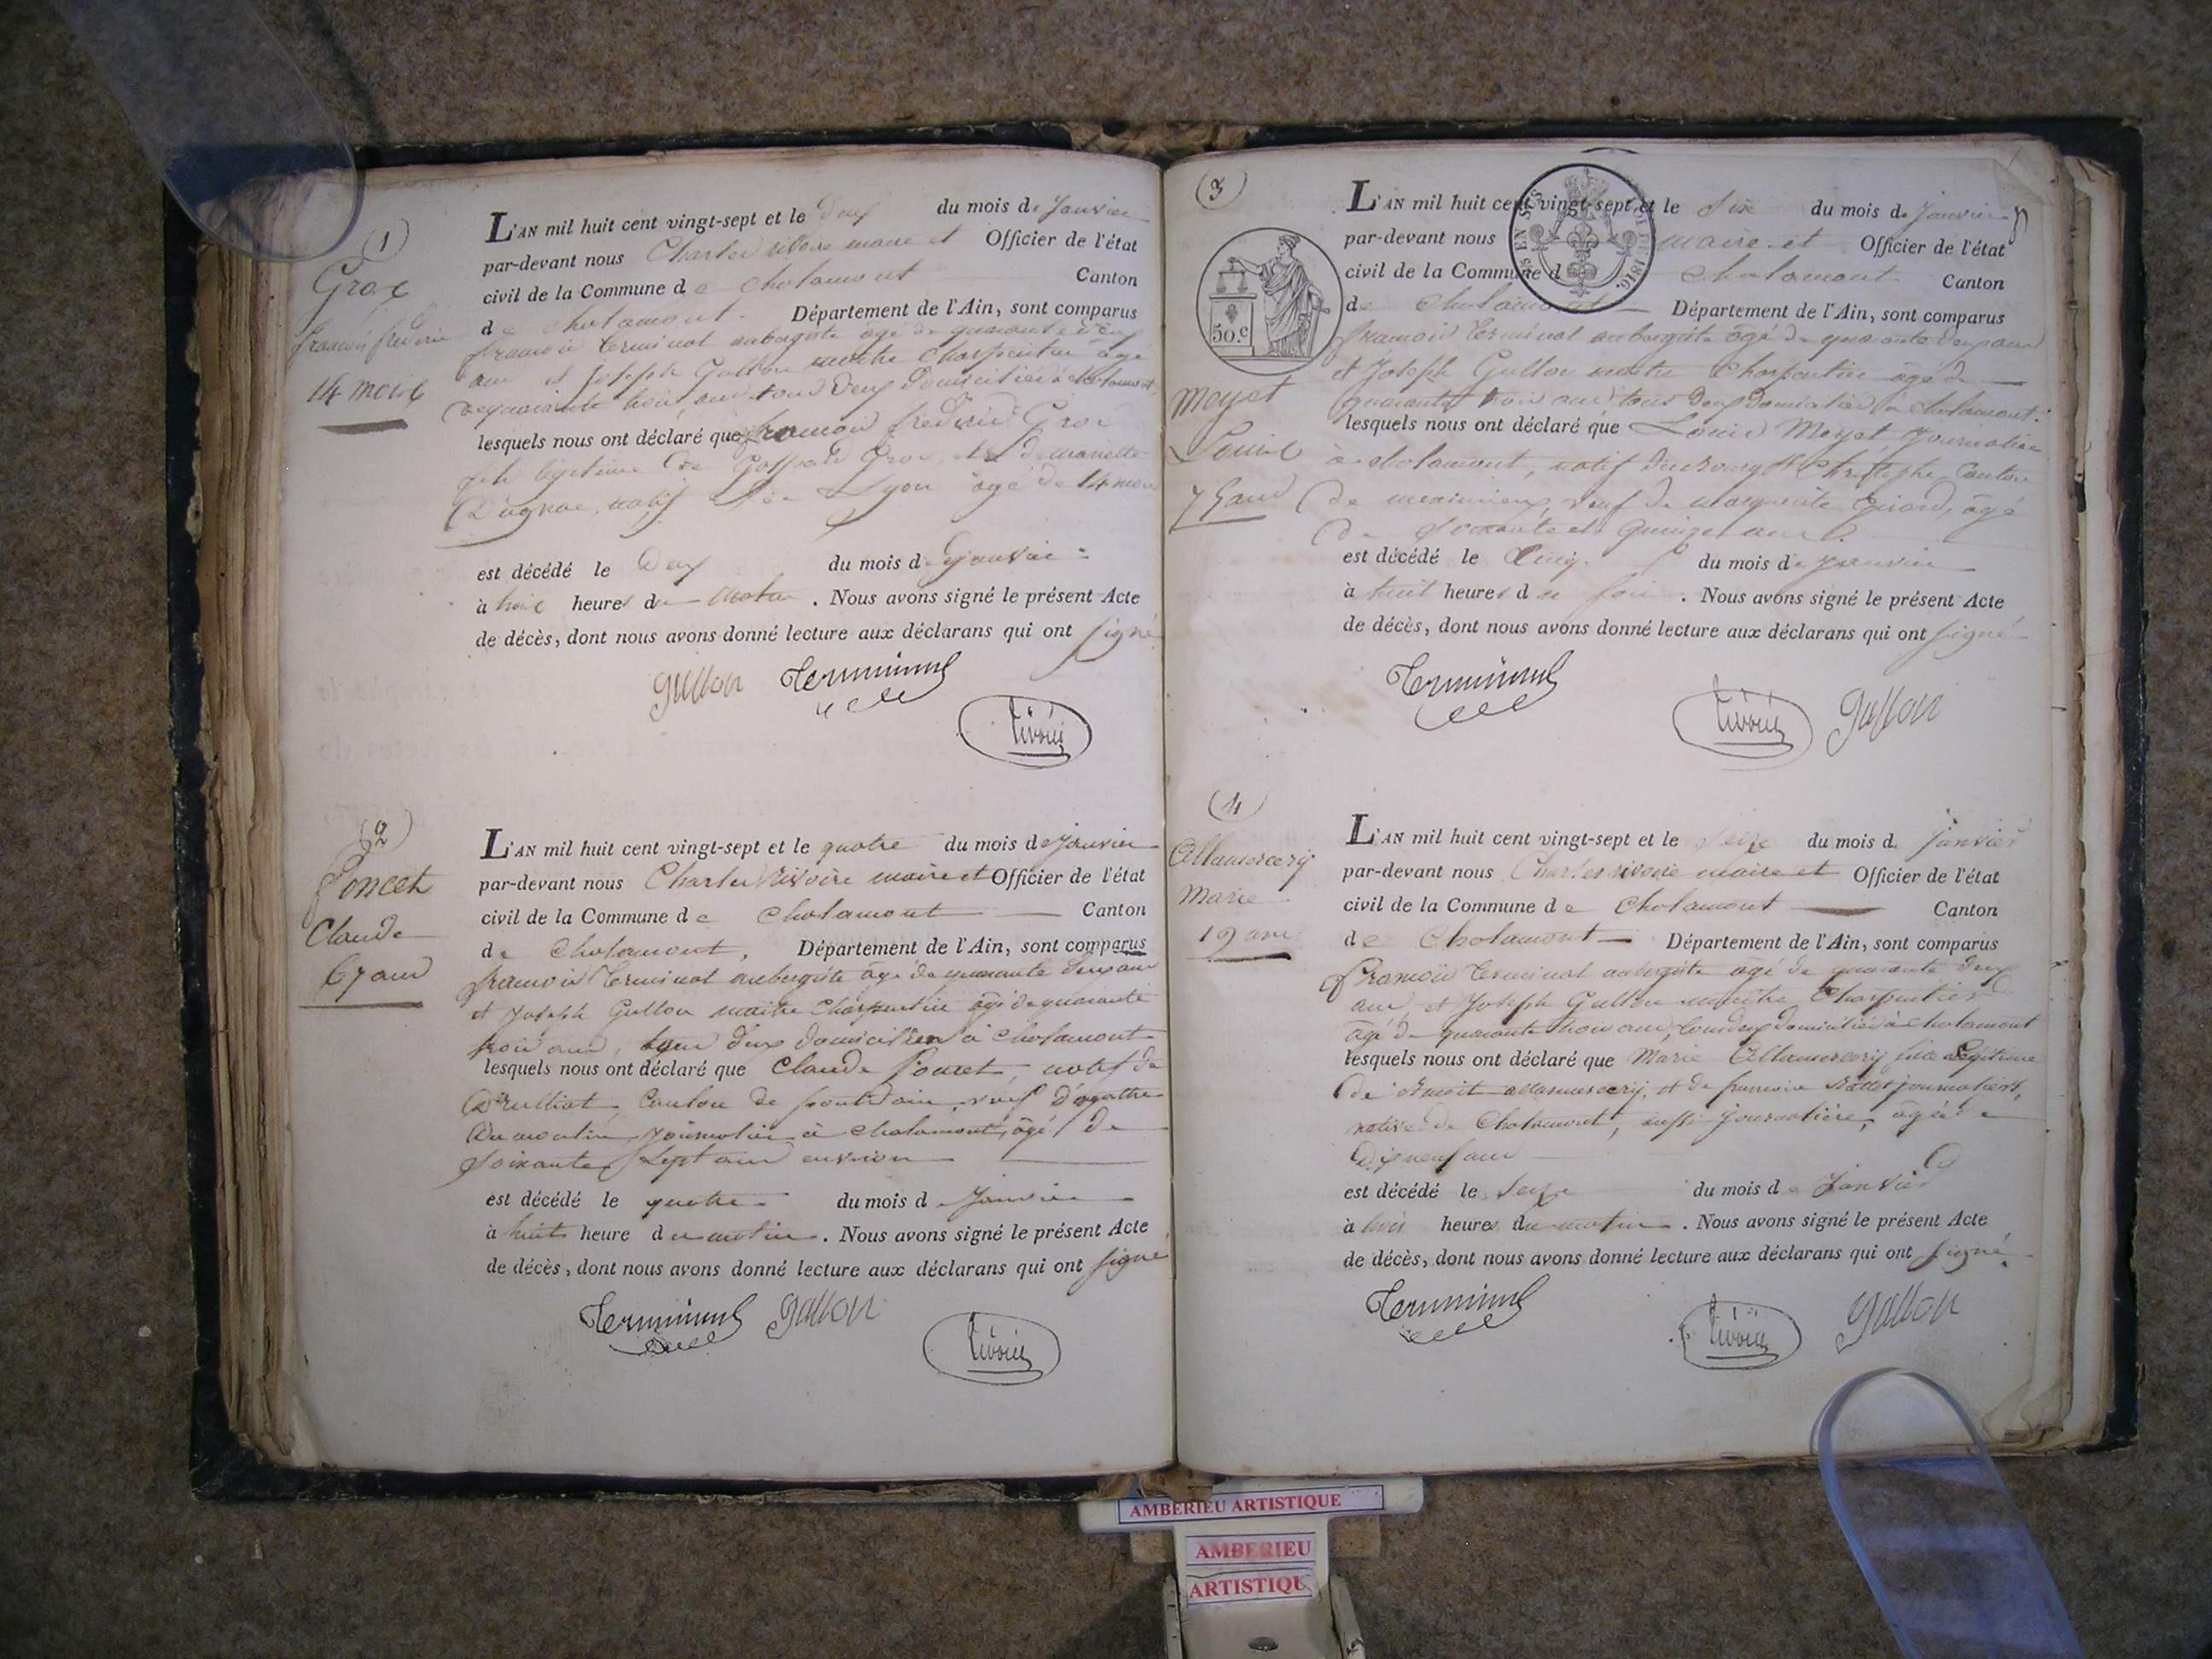 (1)
Grox
françois frédéric
14 mois
L'AN mil huit cent vingt-sept et le Deux du mois de Janvier
par-devant nous Charles rivoire maire et Officier de l'état
civil de la Commune de Chalamont Canton
de Chalamont. Département de l'Ain, sont comparus
françois Terminal aubergiste agé de quarante deux
ans et Joseph Gullon maitre Charpentier âgé
de quarante trois ans tous deux Domiciliés à chalamont
lesquels nous ont déclaré que françois frédéric
fils légitime de Gaspard et de mariette
natif de Lyon âgé de 14 mois
est décédé le Deux du mois de Janvier
à trois heures du matin. Nous avons signé le présent Acte
de décès, dont nous avons donné lecture aux déclarans qui ont signé
Gullon Terminal
rivoire
(2)
Poncet
Claude
67 ans
L'AN mil huit cent vingt-sept et le quatre du mois de Janvier
par-devant nous Charles Rivoire maire et Officier de l'état
civil de la Commune de Chalamont Canton
de Chalamont, Département de l'Ain, sont comparus
françois Terminal aubergiste âgé de quarante deux ans
et Joseph Gullon maitre Charpentier âgé de quarante
trois ans, tous deux domiciliés à Chalamont
lesquels nous ont déclaré que Claude Poncet, natif de
Druillat, Canton de pontdain, veuf d'agathe
Dumoulin, Journalier à Chalamont, âgé de
soixante sept ans environ
est décédé le quatre du mois de Janvier
à huit heure du matin. Nous avons signé le présent Acte
de décès, dont nous avons donné lecture aux déclarans qui ont signé
Terminal Gullon
rivoire
(3)
50.c
EN SUS
1816.
Moyet
Louis
75 ans
L'AN mil huit cent vingt-sept et le Six du mois de Janvier
par-devant nous maire et Officier de l'état
civil de la Commune d Chalamont Canton
de Chalamont Département de l'Ain, sont comparus
françois Terminal aubergiste âgé de quarante deux ans
et Joseph Gullon maitre Charpentier âgé de
quarante trois ans tous deux Domiciliés à chalamont.
lesquels nous ont déclaré que Louis Moyet Journalier
à chalamont, natif du Bourg St Christophe, Canton
de meximieux, veuf de marguerite âgé
de soixante et quinze ans
est décédé le Cinq du mois de Janvier
à huit heures du soir. Nous avons signé le présent Acte
de décès, dont nous avons donné lecture aux déclarans qui ont signé
Terminal
rivoire Gullon
(4)
Allamercery
Marie
19 ans
L'AN mil huit cent vingt-sept et le Seize du mois d Janvier
par-devant nous Charles rivoire maire et Officier de l'état
civil de la Commune de Chalamont Canton
de Chalamont Département de l'Ain, sont comparus
François Terminal aubergiste âgé de quarante deux
ans, et Joseph Gullon maitre Charpentier
âgé de quarante trois ans, tous deux domiciliés à chalamont
lesquels nous ont déclaré que Marie Allamercery fille légitime
de Benoit allamercery, et de françoise journaliers,
native de Chalamont, aussi journalière, âgée de
Dix neuf ans
est décédé le Seize du mois de Janvier
à trois heures du matin. Nous avons signé le présent Acte
de décès, dont nous avons donné lecture aux déclarans qui ont signé.
Terminal
rivoire Gullon
AMBERIEU ARTISTIQUE
AMBERIEU
ARTISTIQU